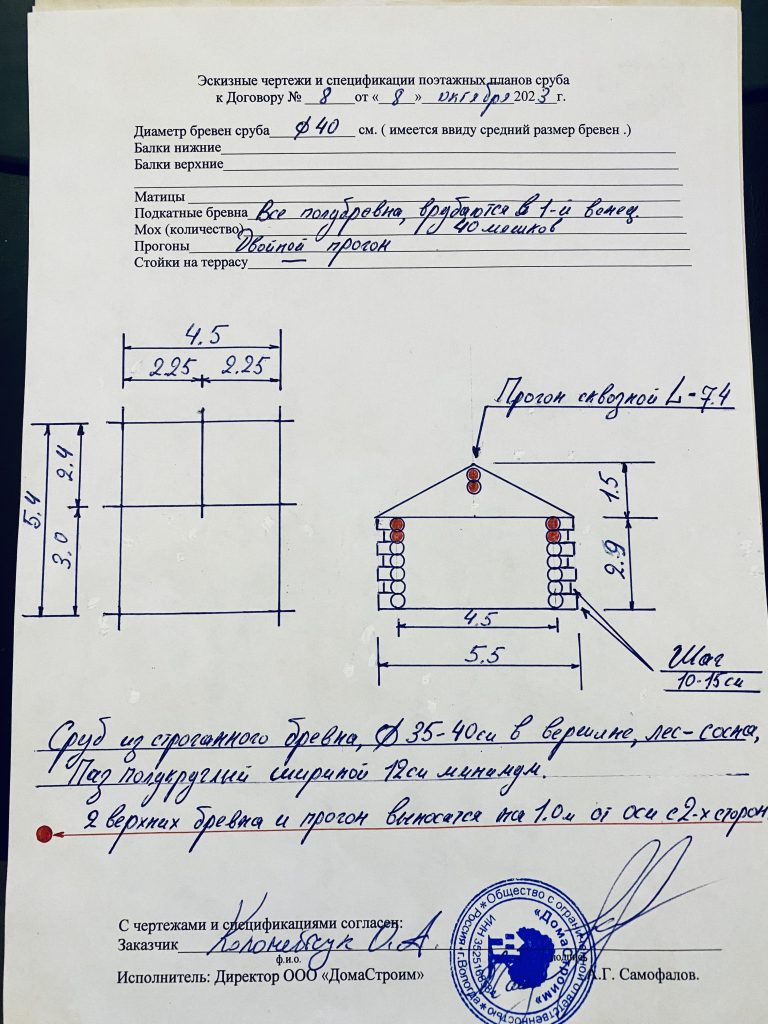 Эскизные чертежи и спецификации поэтажных планов сруба
к Договору № 8 от « 8 » октября 2023 г.
Диаметр бревен сруба ø 40 см. ( имеется ввиду средний размер бревен .)
Балки нижние
Балки верхние
Матицы
Подкатные бревна Все полубревна, врубаются в 1-й венец.
Мох (количество) 40 мешков
Прогоны Двойной прогон
Стойки на террасу —
4.5
2.25 2.25
5.4
2.4
3.0
Прогон сквозной L-7.4
1.5
2.9
4.5
5.5
Шаг
10-15см
Сруб из строганного бревна, ø 35-40см в вершине, лес-сосна,
Паз полукруглый шириной 12см минимум.
2 верхних бревна и прогон выносятся на 1.0м от оси с 2-х сторон
С чертежами и спецификациями согласен:
Заказчик О.А.
ф.и.о. подпись
Исполнитель: Директор ООО «ДомаСтроим» А.Г. Самофалов.
Общество с ограниченной ответственностью
«ДомаСтроим»
Россия г.Вологда
ИНН 3525